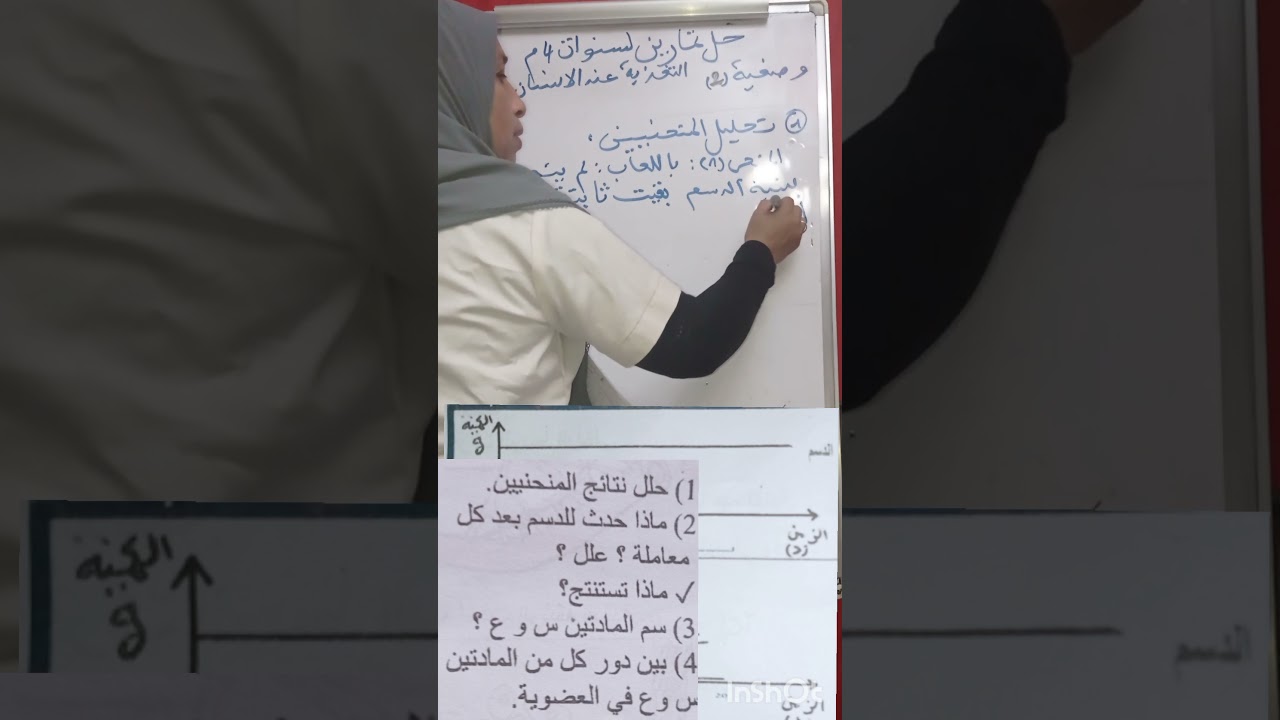 حل تمارين لسنوات 4م
وضعية (2) التغذية عند الانسان
① تحليل المنحنيين،
المنحنى (1): باللعاب: لم
كمية الدسم بقيت ثابتة
الكمية
g
الدسم
الزمن
(د)
1) حلل نتائج المنحنيين.
2) ماذا حدث للدسم بعد كل
معاملة ؟ علل ؟
✓ ماذا تستنتج؟
3) سم المادتين س و ع ؟
4) بين دور كل من المادتين
س وع في العضوية.
الزمن
InShOt
الكمية
g
الدسم